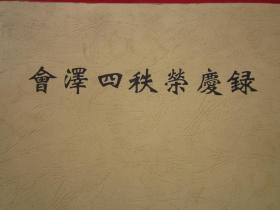 會澤四秩榮慶録